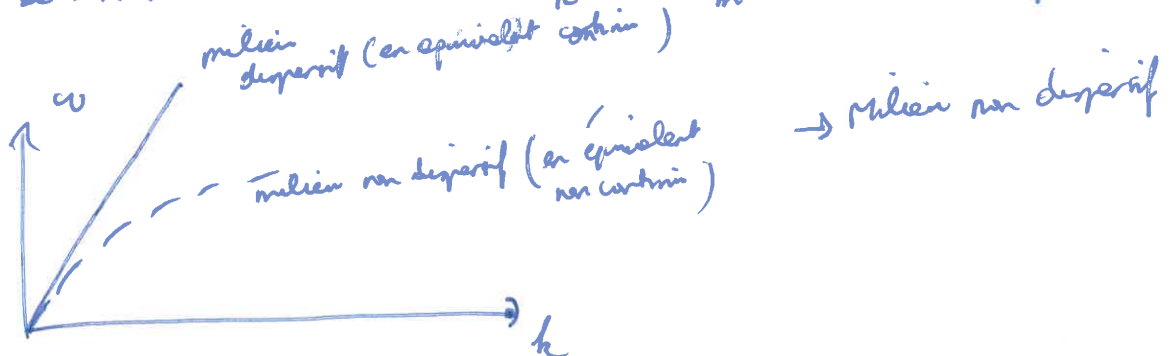 milieu
dispersif (en équivalent continu)
ω
milieu non dispersif (en équivalent
non continu)
→ Milieu non dispersif
k